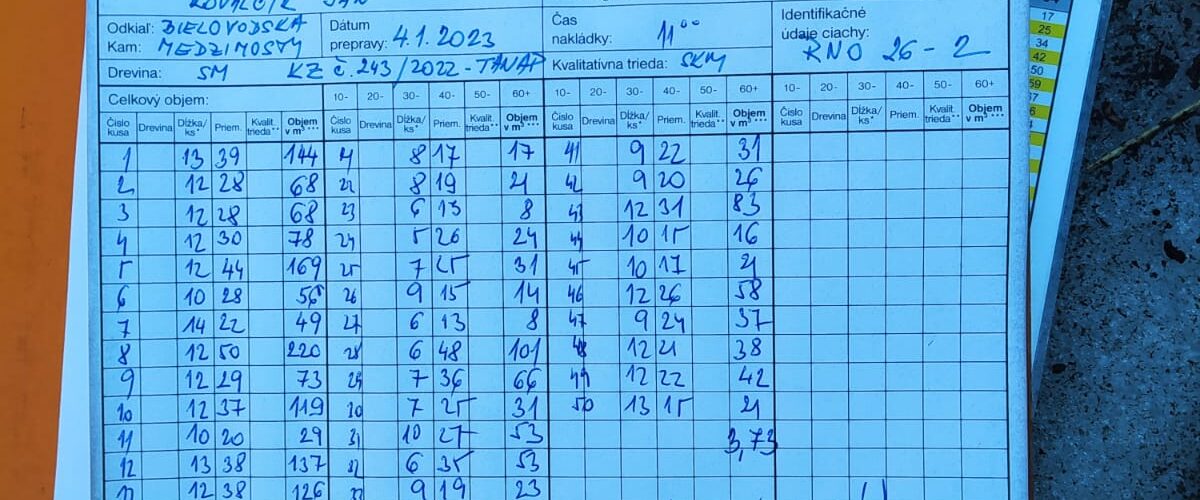 Odkiaľ: BIELOVODSKÁ Dátum Čas Identifikačné
Kam: MEDZIMOSTY prepravy: 4.1.2023 nakládky: 11°° údaje ciachy: RNO 26-2
Drevina: SM KZ č.243/2022-TANAP Kvalitatívna trieda: SKM
Celkový objem: 10- 20- 30- 40- 50- 60+ 10- 20- 30- 40- 50- 60+ 10- 20- 30- 40- 50- 60+
Číslo kusa Drevina Dĺžka/ks* Priem. Kvalit. trieda** Objem v m³*** Číslo kusa Drevina Dĺžka/ks* Priem. Kvalit. trieda** Objem v m³*** Číslo kusa Drevina Dĺžka/ks* Priem. Kvalit. trieda** Objem v m³*** Číslo kusa Drevina Dĺžka/ks* Priem. Kvalit. trieda** Objem v m³***
1 13 39 144 21 8 17 17 41 9 22 31
2 12 28 68 22 8 19 21 42 9 20 26
3 12 28 68 23 6 13 8 43 12 31 83
4 12 30 78 24 5 26 24 44 10 15 16
5 12 44 169 25 7 25 31 45 10 17 21
6 10 28 56 26 9 15 14 46 12 26 58
7 14 22 49 27 6 13 8 47 9 24 37
8 12 50 220 28 6 48 101 48 12 21 38
9 12 29 73 29 7 36 66 49 12 22 42
10 12 37 119 30 7 25 31 50 13 15 21
11 10 20 29 31 10 27 53 3,73
12 13 38 137 32 6 35 53
12 38 126 9 19 23
17
25
34
42
50
59